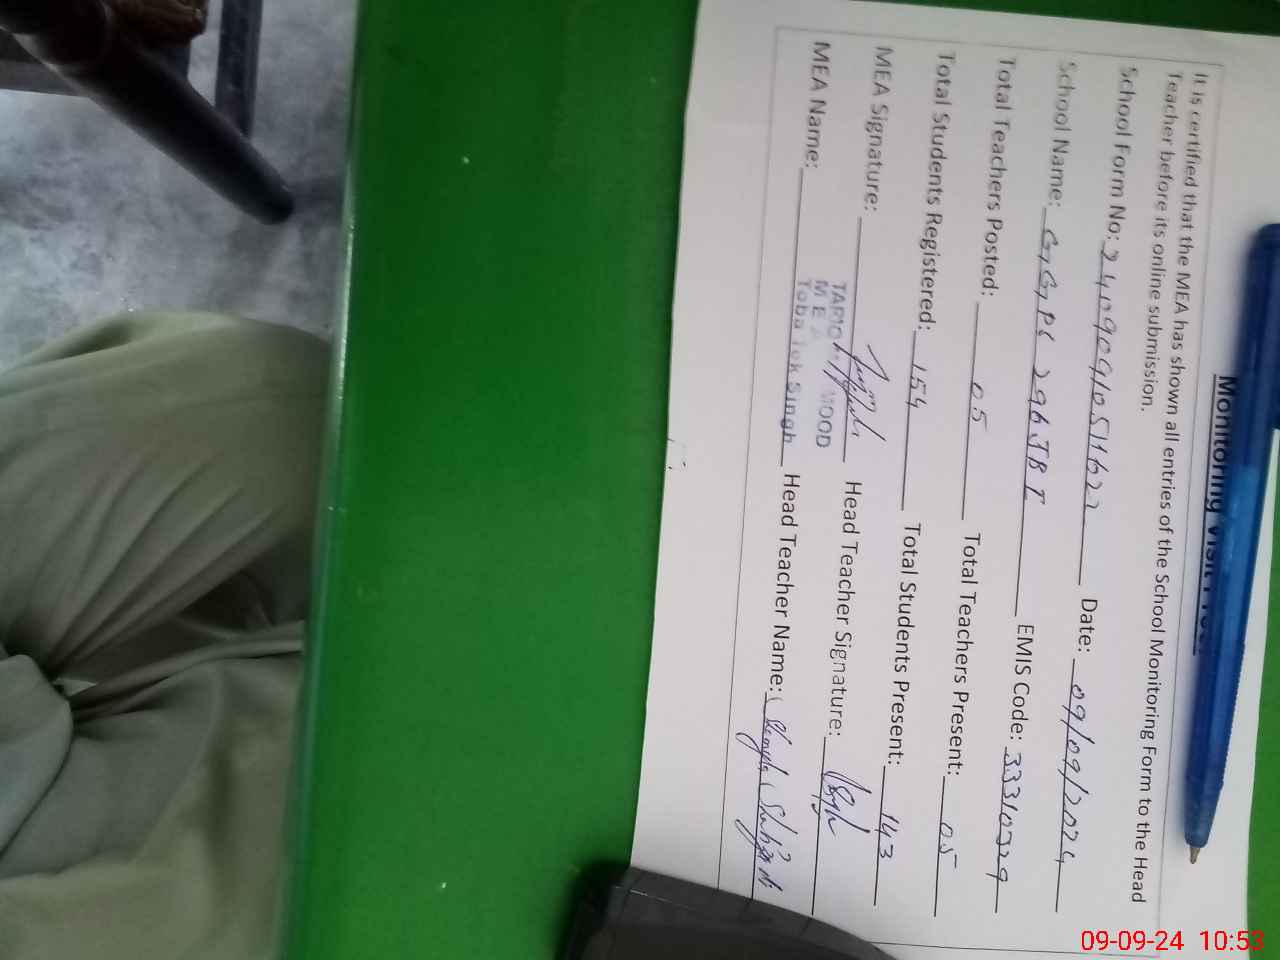 Monitoring Visit
It is certified that the MEA has shown all entries of the School Monitoring Form to the Head
Teacher before its online submission.
School Form No: 24090910511622 Date: 09/09/2024
School Name: GGPS 296 JB I EMIS Code: 33310329
Total Teachers Posted: 05 Total Teachers Present: 05
Total Students Registered: 154 Total Students Present: 143
MEA Signature: Head Teacher Signature:
TARIQ MOOD
M E A
MEA Name: Toba Tek Singh Head Teacher Name:
09-09-24 10:53